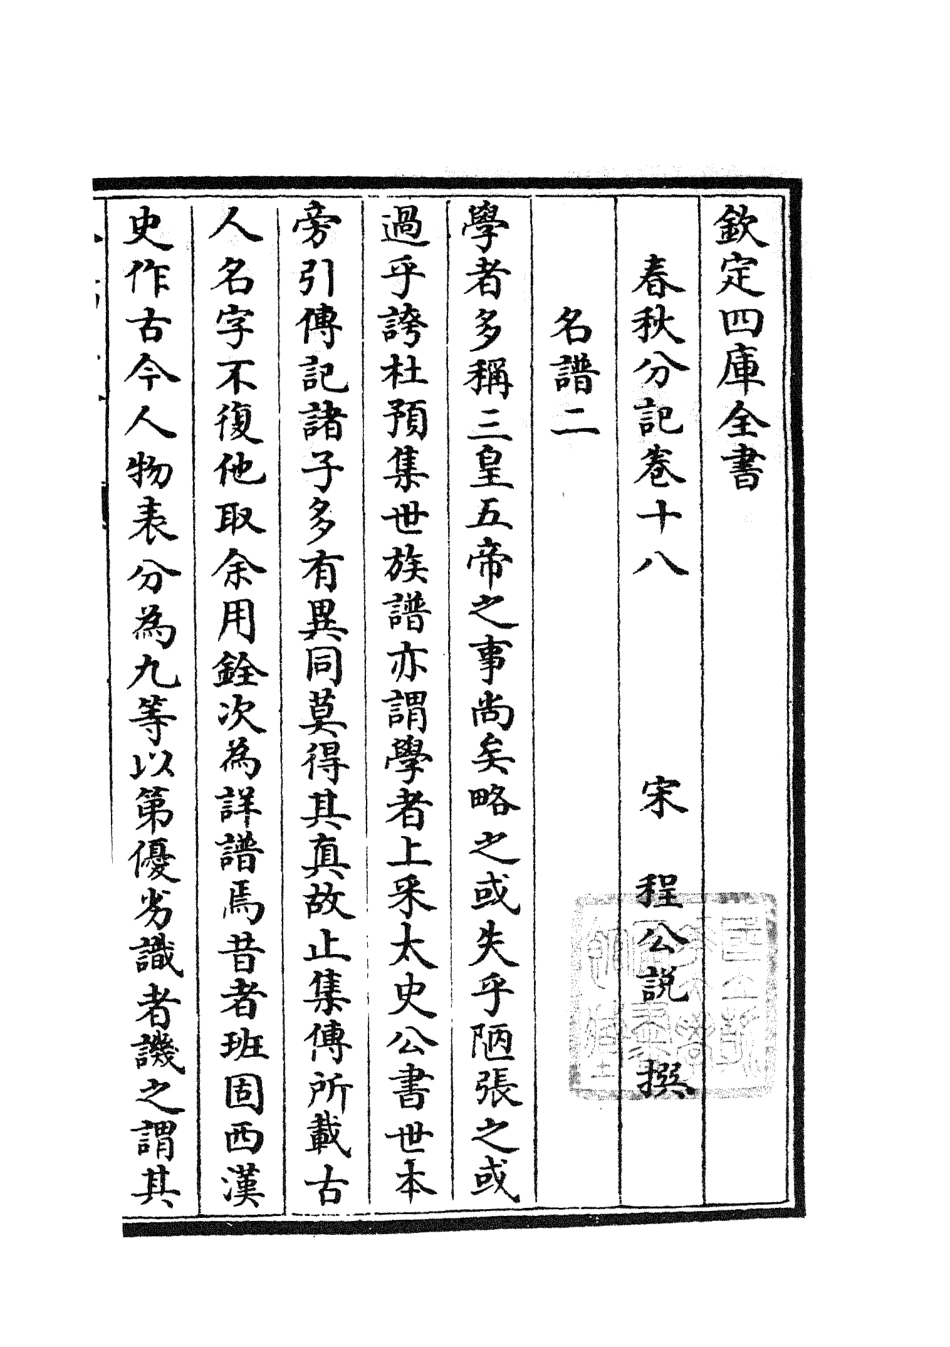 欽定四庫全書
春秋分記卷十八　宋　程公說　撰
名譜二
學者多稱三皇五帝之事尚矣略之或失乎陋張之或
過乎誇杜預集世族譜亦謂學者上采太史公書世本
旁引傳記諸子多有異同莫得其真故止集傳所載古
人名字不復他取余用銓次為詳譜焉昔者班固西漢
史作古今人物表分為九等以第優劣識者譏之謂其